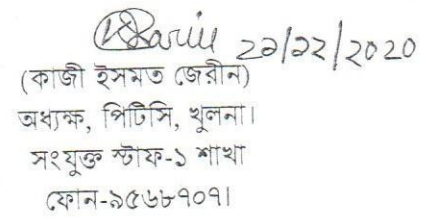 ২১/১২/২০২০
(কাজী ইসমত জেরীন)
অধ্যক্ষ, পিটিসি, খুলনা।
সংযুক্ত স্টাফ-১ শাখা
ফোন-৯৫৬৮৭০৭।